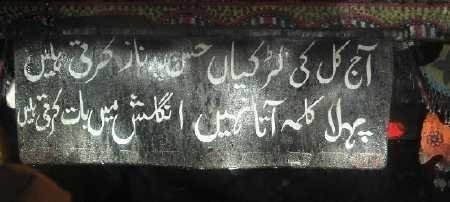 آج کل کی لڑکیاں حسن پہ ناز کرتی ہیں
پہلا کلمہ آتا نہیں انگلش میں بات کرتی ہیں